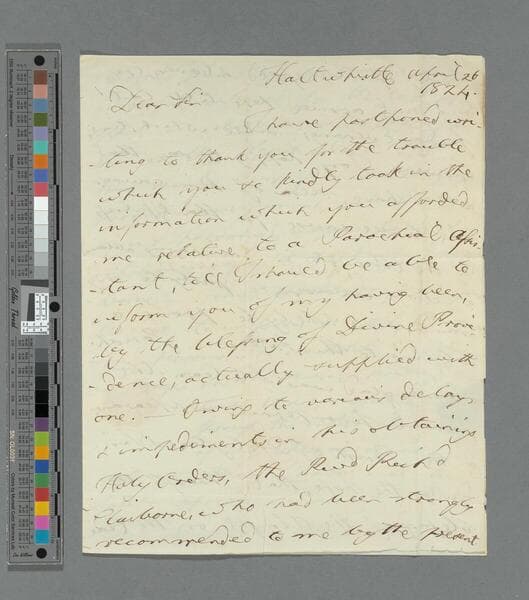 Haltwhistle April 26
1824.
Dear Sir
I have postponed wri-
-ting to thank you for the trouble
which you so kindly took in the
information which you afforded
me relative to a Parochial Assis-
-tant, till I should be able to
inform you of my having been,
by the blessing of Divine Provi-
-dence, actually supplied with
one. — Owing to various delays
& impediments in his obtaining
Holy Orders, the Revd Richd
Claiborne, who had been strongly
recommended to me by the present